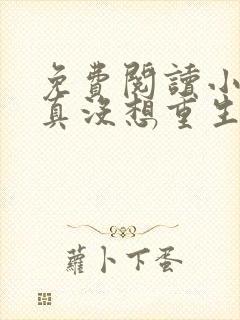 免費閱讀小
真沒想重生
蘿卜下蛋